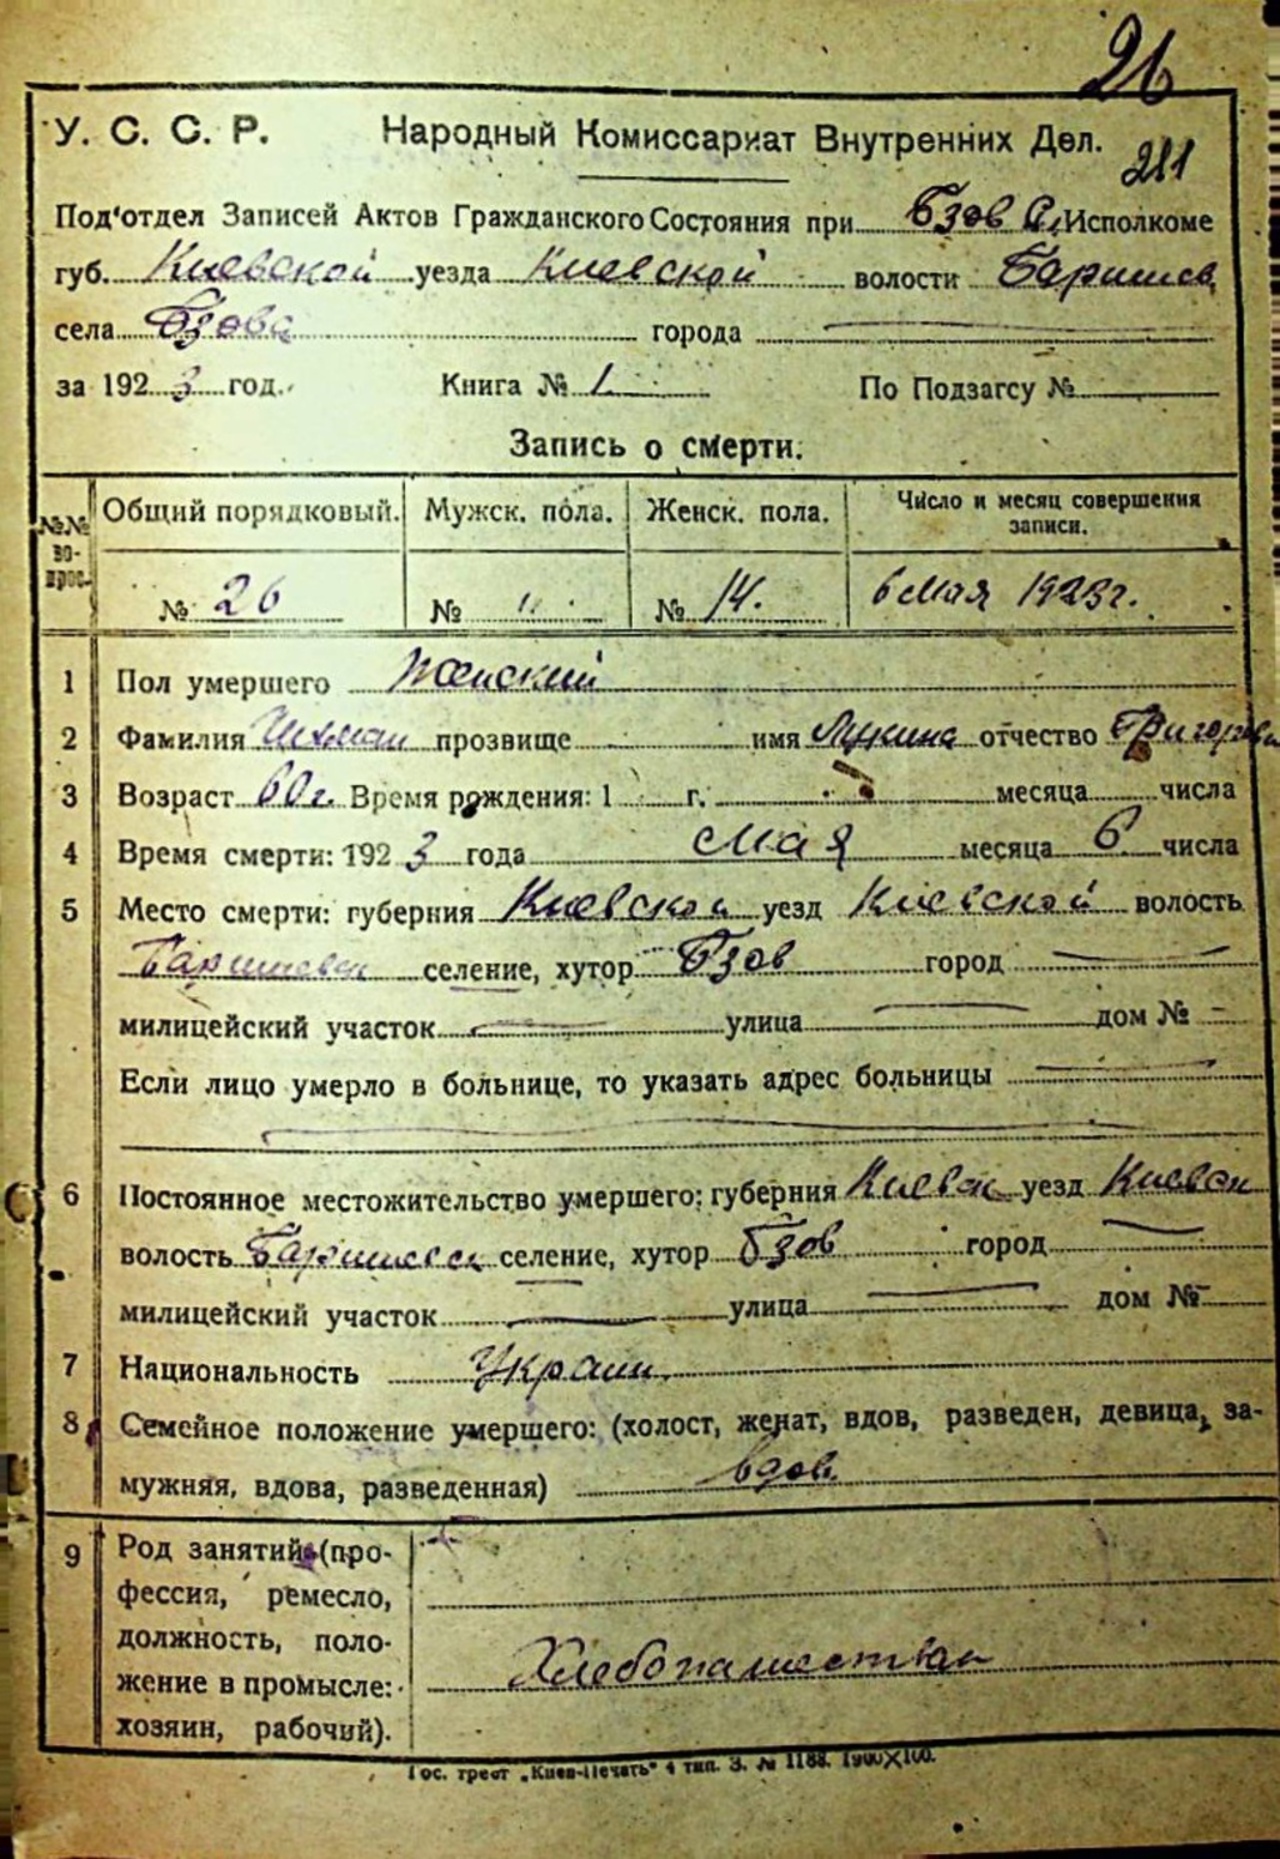 26
У. С. С. Р. Народный Комиссариат Внутренних Дел.
281
Под'отдел Записей Актов Гражданского Состояния при Бзов С. Исполкоме
губ. Киевской уезда Киевской волости Баришев.
села Бзова города
за 1923 год. Книга № 1 По Подзагсу №
Запись о смерти.
№№ вопрос. Общий порядковый. Мужск. пола. Женск. пола. Число и месяц совершения записи.
№ 26 № " № 14. 6 Мая 1923 г.
1 Пол умершего Женский
2 Фамилия прозвище имя отчество
3 Возраст 60 г. Время рождения: 1 г. месяца числа
4 Время смерти: 1923 года Мая месяца 6 числа
5 Место смерти: губерния Киевской уезд Киевской волость
Баришевск селение, хутор Бзов город
милицейский участок улица дом №
Если лицо умерло в больнице, то указать адрес больницы
6 Постоянное местожительство умершего: губерния Киевск уезд Киевск
волость Баришевск селение, хутор Бзов город
милицейский участок улица дом №
7 Национальность Украин.
8 Семейное положение умершего: (холост, женат, вдов, разведен, девица, за-
мужняя, вдова, разведенная) вдов.
9 Род занятий (про-
фессия, ремесло,
должность, поло-
жение в промысле:
хозяин, рабочий).
Хлебопашество
Гос. трест „Киев-Печать" 4 тип. З. № 1188. 1900X100.